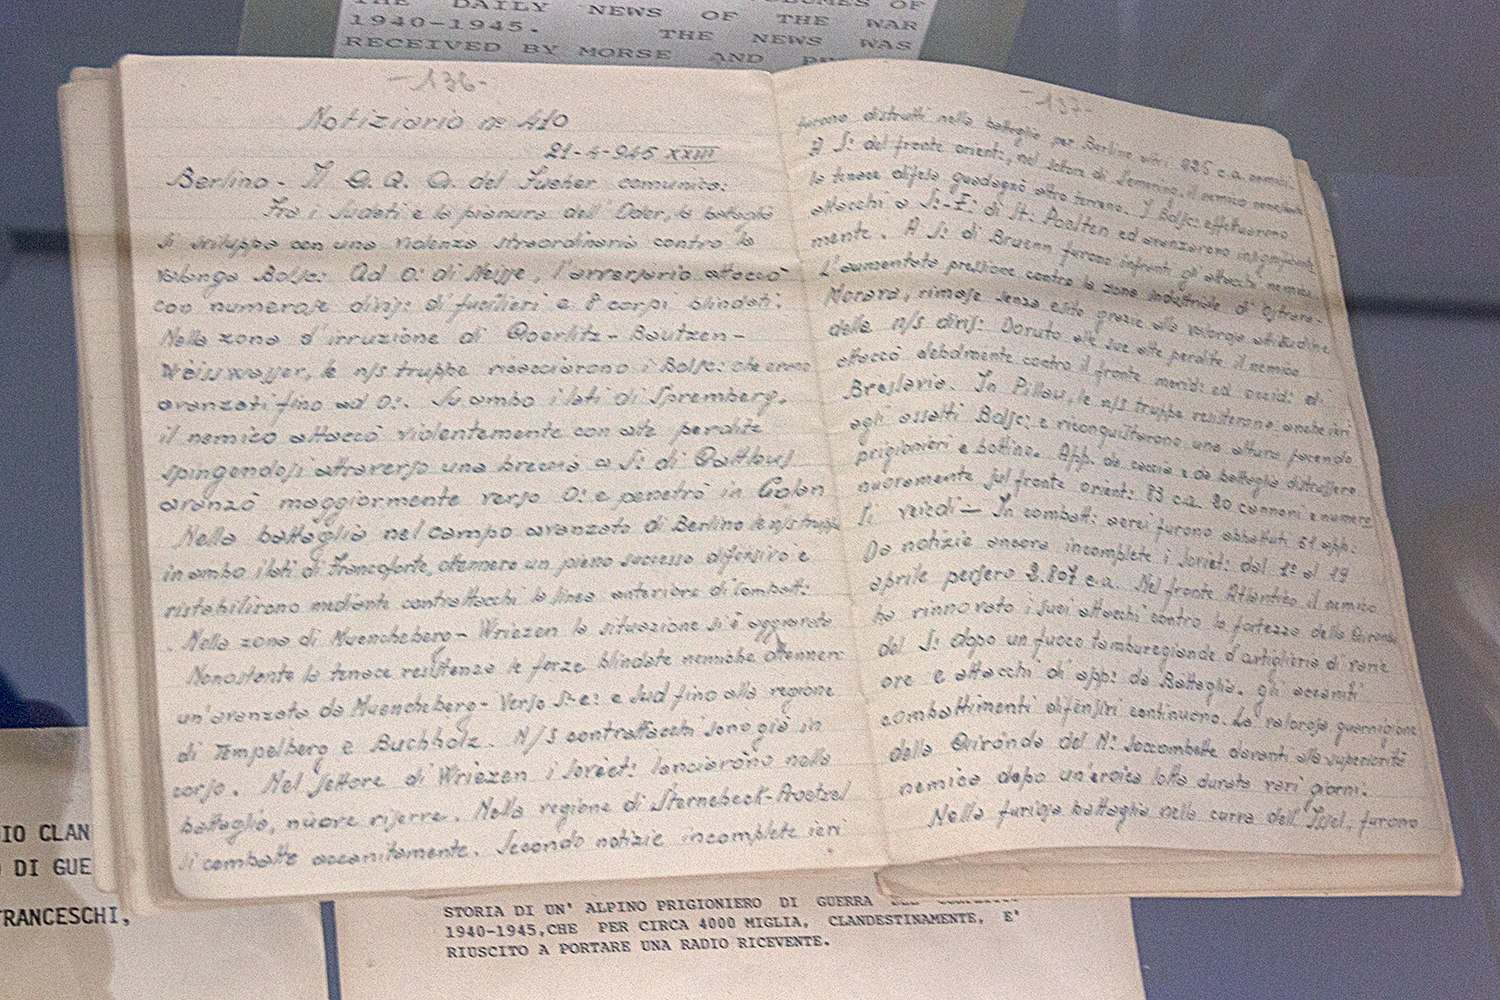 THE DAILY NEWS OF THE WAR
1940-1945. THE NEWS WAS
RECEIVED BY MORSE AND
-136-
Notiziario nº 410
21-4-945 XXIII
Berlino - Il Q. G. del Fueher comunica:
Fra i Sudeti e la pianura dell'Oder, la battaglia
si sviluppa con una violenza straordinaria contro la
valanga Bolsc: Ad O: di Neisse, l'avversario attaccò
con numerose divis: di fucilieri e 8 corpi blindati.
Nella zona d'irruzione di Goerlitz - Bautzen -
Weisswasser, le n/s truppe ricacciarono i Bolsc: che erano
avanzati fino ad O:. Su ambo i lati di Spremberg,
il nemico attaccò violentemente con alte perdite
spingendosi attraverso una breccia a S: di Cottbus
avanzò maggiormente verso O: e penetrò in Calan
Nella battaglia nel campo avanzato di Berlino le n/s truppe
in ambo i lati di Francoforte, ottennero un pieno successo difensivo e
ristabilirono mediante contrattacchi la linea anteriore di Combatt:
. Nella zona di Muencheberg - Wriezen la situazione si è aggravata
Nonostante la tenace resistenza le forze blindate nemiche, ottennero
un'avanzata da Muencheberg - Verso S-e: e Sud fino alla regione
di Tempelberg e Buchholz. N/S contrattacchi sono già in
corso. Nel settore di Wriezen i Soviet: lanciarono nella
battaglia, nuove riserve. Nella regione di Sternebeck-Proetzel
si combatte accanitamente. Secondo notizie incomplete ieri
-137-
furono distrutti nella battaglia per Berlino altri 225 c.a. nemici.
A S: del fronte orient:, nel settore di Semering, il nemico nonostante
la tenace difesa guadagnò altro terreno. I Bolsc: effettuarono
attacchi a S:-E: di St: Poelten ed avanzarono insignificante
mente. A S: di Bruenn furono infranti gli attacchi nemici.
L'aumentata pressione contro la zona industriale di Ostrava-
Morava, rimase senza esito grazie alla valorosa attitudine
delle n/s divis: Dovuto alle sue alte perdite il nemico
attaccò debolmente contro il fronte merid: ed occid: di
Breslavia. In Pillau, le n/s truppe resisterono anche ieri
agli assalti Bolsc: e riconquistarono una altura facendo
prigionieri e bottino. App: da caccia e da battaglia distrussero
nuovamente sul fronte orient: 83 c.a. 20 cannoni e numero
si veicoli - In combatt: aerei furono abbattuti 51 app:
Da notizie ancora incomplete i Soviet: dal 1º al 19
aprile persero 2.807 c.a. Nel fronte Atlantico il nemico
ha rinnovato i suoi attacchi contro la fortezza della Gironda
del S: dopo un fuoco tambureggiande d'artiglieria di varie
ore e attacchi di app: da Battaglia. gli accaniti
combattimenti difensivi continuano. La valorosa guarnigione
della Gironda del N: soccombette davanti alla superiorità
nemica dopo un'eroica lotta durata vari giorni.
Nella furiosa battaglia nella curva dell'Issel, furono
IO CLAN
DI GUE
FRANCESCHI,
STORIA DI UN' ALPINO PRIGIONIERO DI GUERRA
1940-1945, CHE PER CIRCA 4000 MIGLIA, CLANDESTINAMENTE, E'
RIUSCITO A PORTARE UNA RADIO RICEVENTE.